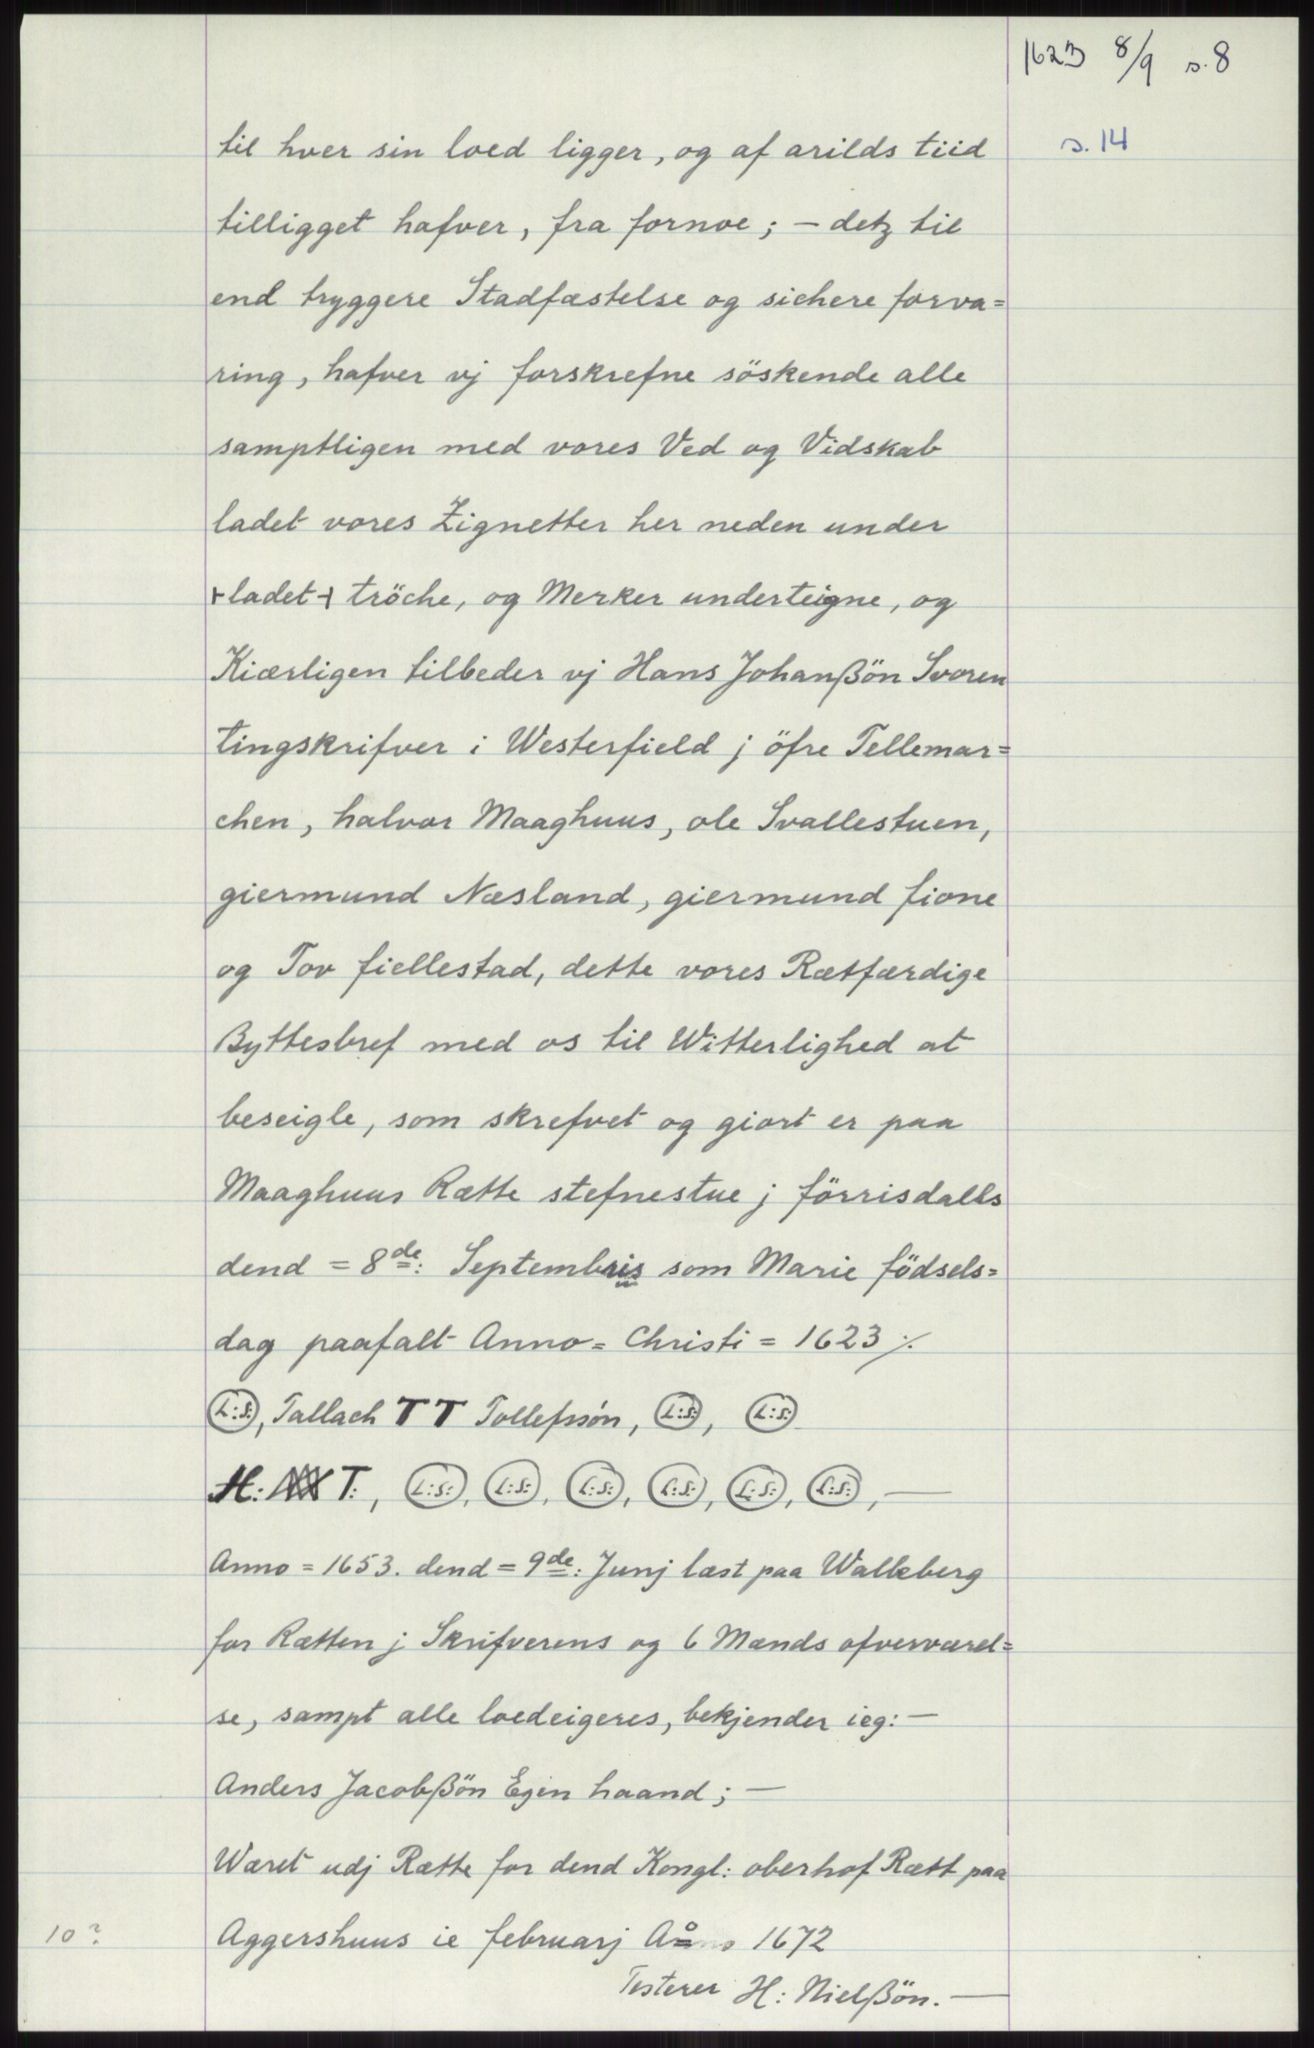 1623 8/9 s. 8
s. 14
til hver sin loed ligger, og af arilds tiid
tilligget hafver, fra fornoe; — detz til
end tryggere Stadfæstelse og sichere forva=
ring, hafver vj forskrefne söskende alle
samptligen med vores Ved og Vidskab
ladet vores Zignetter her neden under
+ladet+ tröche, og Merker underteigne, og
Kiærligen tilbeder vj Hans Johanßön Svoren
tingskrifver i Westerfield j öfre Tellemar=
chen, halvor Maaghuus, ole Svallestuen,
giermund Næsland, giermund fione
og Tov fiellestad, dette vores Rætfærdige
Byttesbref med os til Witterlighed at
beseigle, som skrefvet og giort er paa
Maaghuus Rætte stefnestue j förrisdalls
dend = 8de: Septembris som Marie födsels=
dag paafalt Anno = Christi = 1623 ⁒
L:S:, Tallach T T Tollefssön, L:S:, L:S:
H: T:, L:S:, L:S:, L:S:, L:S:, L:S:, L:S:, —
Anno = 1653. dend = 9de: Junj læst paa Walleberg
for Rætten j Skrifverens og 6 Mænds ofverværel=
se, sampt alle loedeigeres, bekjender ieg: —
Anders Jacobßön Egen haand; —
Wæret udj Rætte for dend Kongl: oberhof Rætt paa
10? Aggershuus ie februarj Aō 1672
Testerer H: Nielßön. —